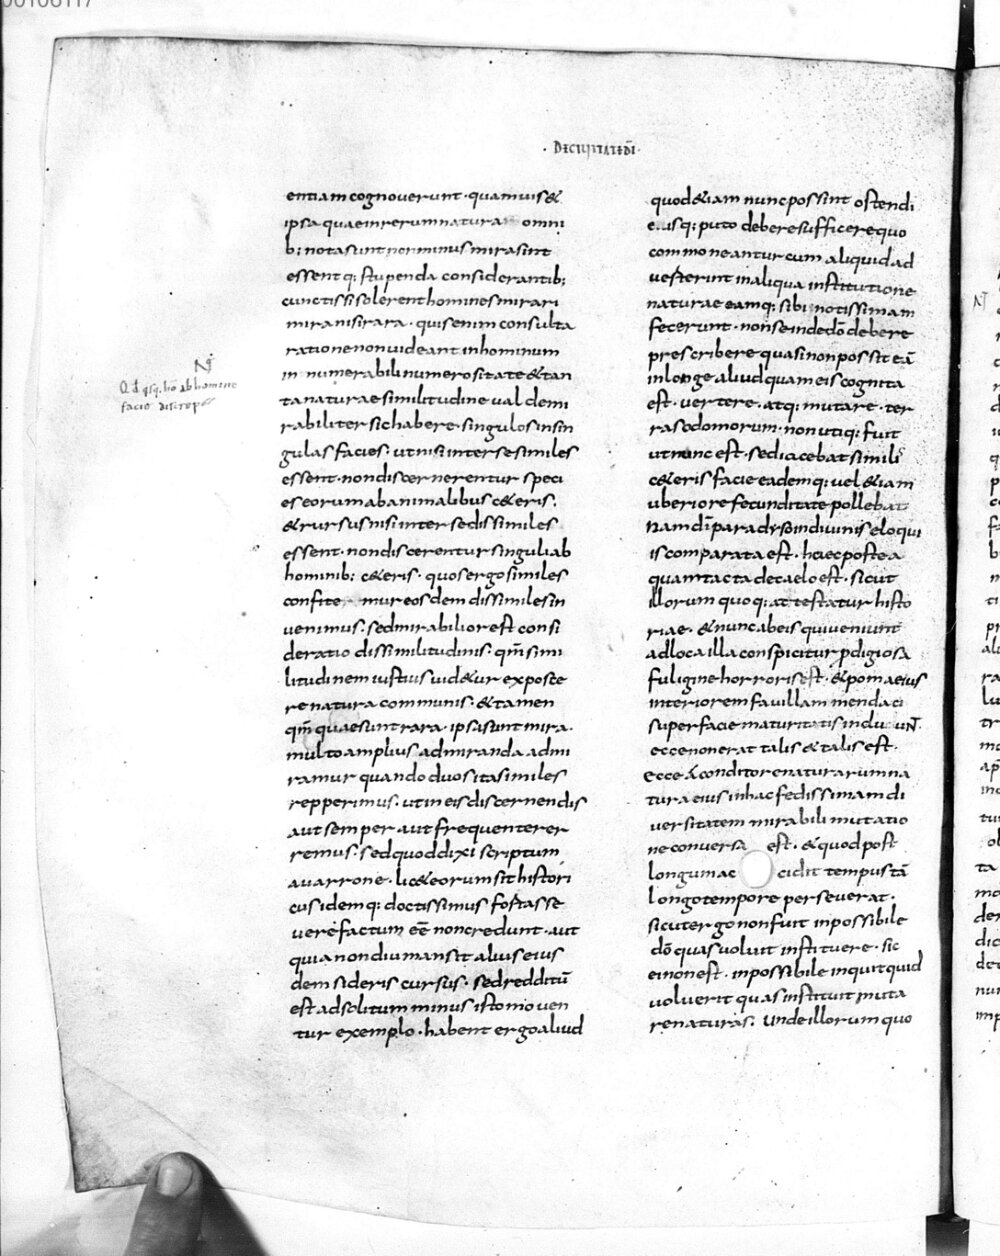 00106117
· DE CIUITATE DĪ ·
entiam cognouerunt · quamuis &
ipsa quae in rerum natura omni
b; nota sunt non minus mira sint
essentq; stupenda considerantib;
cunctis si solerent homines mirari
mira nisi rara · quis enim consulta
ratione non uideant in hominum
in numerabili numerositate & tan
ta naturae similitudine ual de mi
rabiliter sic habere singulos in sin
gulas facies · ut nisi inter se similes
essent · non discernerentur speci
es eorum ab animalibus c&eris ·
& rursus nisi inter se dissimiles
essent · non discerentur singuli ab
hominib; c&eris · quos ergo similes
confite mur eosdem dissimiles in
uenimus · sed mirabilior est consi
deratio dissimilitudinis · qm̄ simi
litudinem iustius uid&ur exposce
re natura communis · & tamen
qm̄ quae sunt rara · ipsa sunt mira ·
multo amplius admiranda admi
ramur quando duos ita similes
repperimus · ut in eis discernendis
aut semper aut frequenter er
remus · sed quod dixi scriptum
a uarrone · lic& eorum sit histori
cus idemq; doctissimus fortasse
uere factum eē non credunt · aut
quia non diu mansit alius eius
dem sideris cursus · sed redditū
est ad solitum minus isto mouen
tur exemplo · habent ergo aliud
Ꞥ
Qd qsq; hō ab homine
facie discrepet
quod &iam nunc possint ostendi
eisq; puto debere sufficere quo
commoneantur cum aliquid ad
uerterint in aliqua institutione
naturae eamq; sibi notissimam
fecerunt · non se inde dō debere
prescribere quasi non possit eā
in longe aliud quam eis cognita
est · uertere · atq; mutare · ter
ra sodomorum · non utiq; fuit
ut nunc est · sed iacebat simili
c&eris facie eademq; uel &iam
uberiore fecunditate pollebat
Nam dī paradyso in diuinis eloqui
is comparata est · haec postea
quam tacta de caelo est · sicut
illorum quoq; at testatur histo
riae · & nunc ab eis qui ueniunt
ad loca illa conspicitur pdigiosa
fuligine horrori est · & poma eius
interiorem fauillam mendaci
superfacie maturitatis includuÑ
ecce non erat talis & talis est ·
ecce a conditore naturarum na
tura eius in hac fedissimam di
uersitatem mirabili mutatio
ne conuersa est · & quod post
longum ac cidit tempus tā
longo tempore perseuerat ·
sicut ergo non fuit inpossibile
dō quas uoluit instituere · sic
ei non est · inpossibile in quit quid
uoluerit quas instituit muta
re naturas · Unde illorum quo